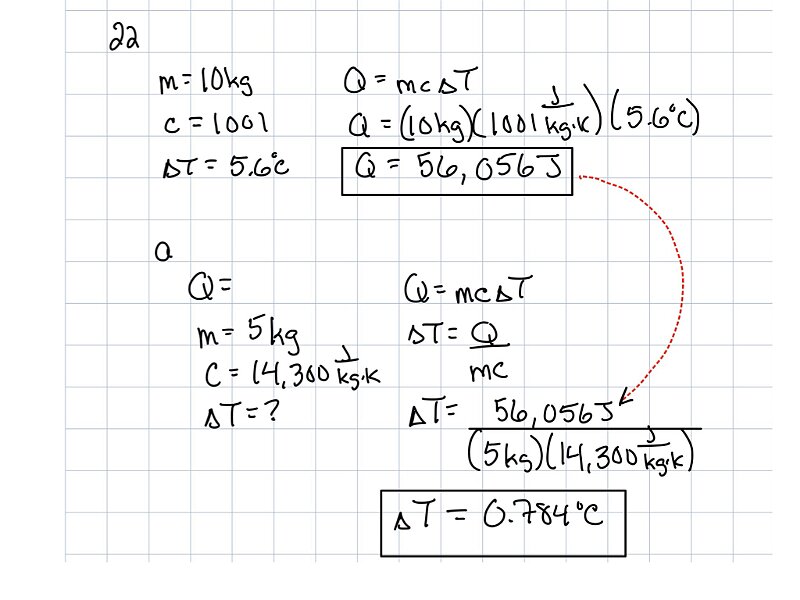 22
m = 10kg
c = 1001
ΔT = 5.6°C
Q = mcΔT
Q = (10kg)(1001 J/kg·K)(5.6°C)
Q = 56,056J
a
Q =
m = 5kg
C = 14,300 J/kg·K
ΔT = ?
Q = mcΔT
ΔT = Q/mc
ΔT = 56,056J/(5kg)(14,300 J/kg·K)
ΔT = 0.784°C